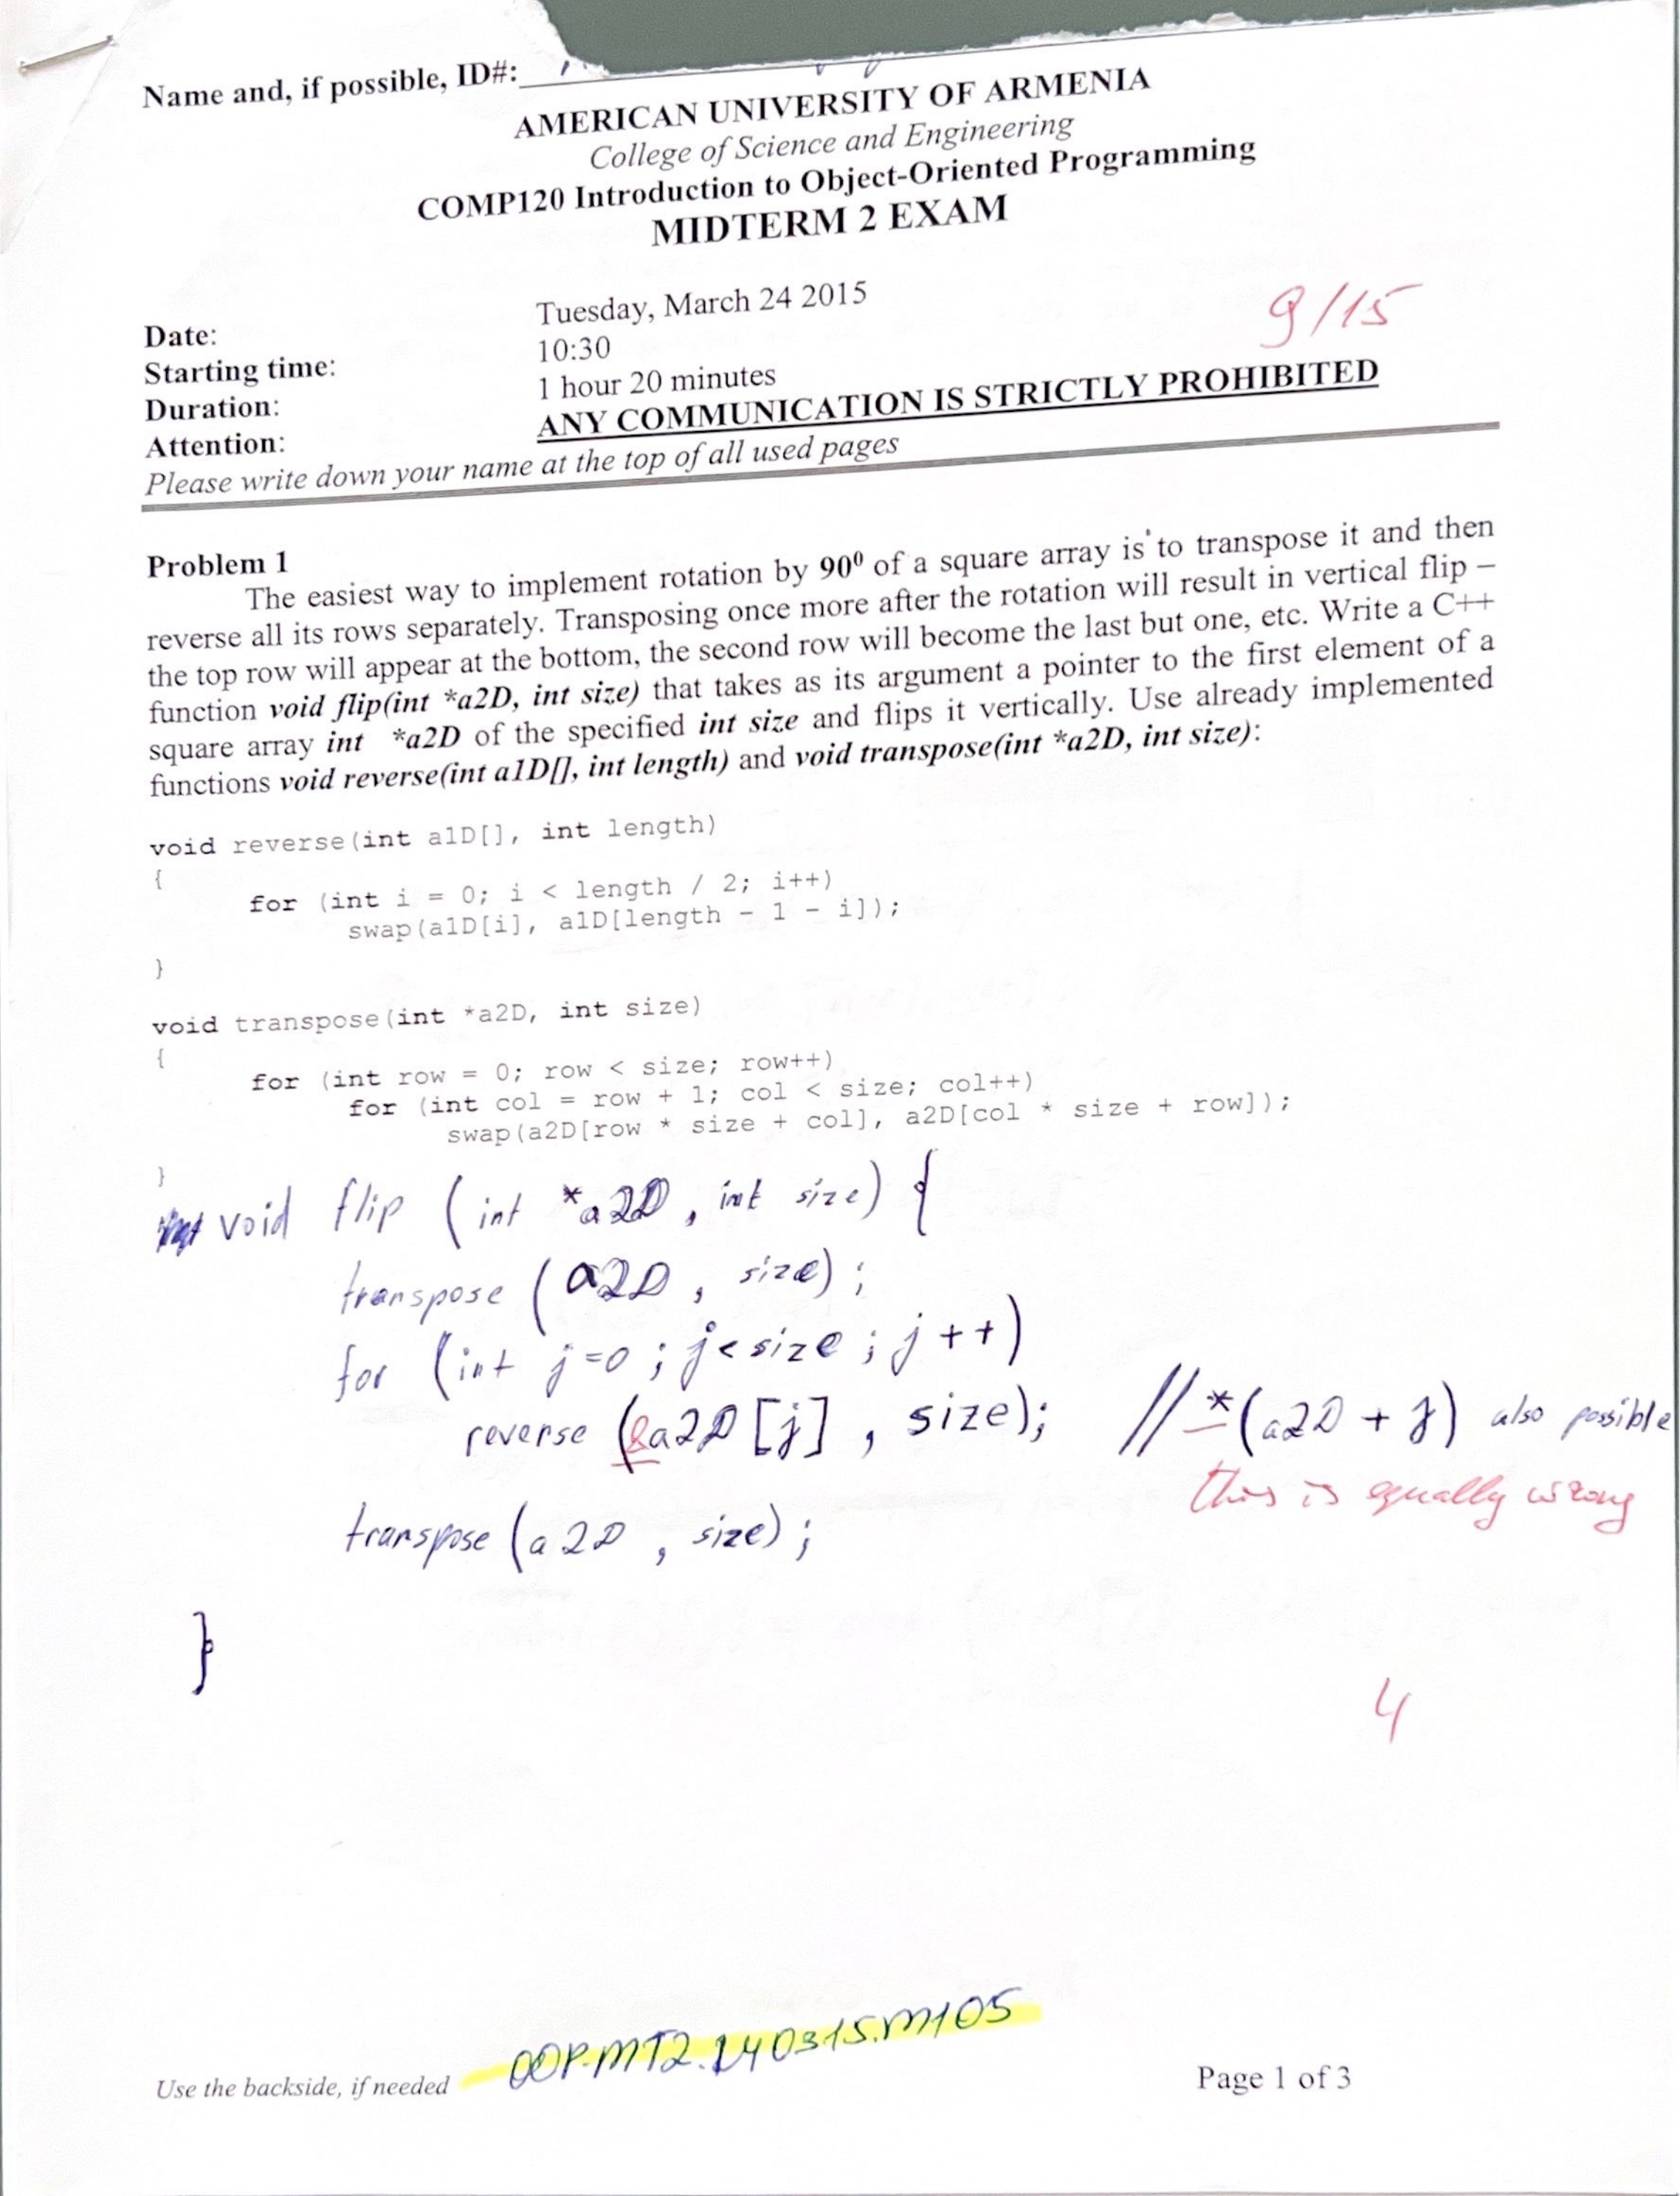 Name and, if possible, ID#:
AMERICAN UNIVERSITY OF ARMENIA
College of Science and Engineering
COMP120 Introduction to Object-Oriented Programming
MIDTERM 2 EXAM
Date: Tuesday, March 24 2015
Starting time: 10:30
9/15
Duration: 1 hour 20 minutes
Attention: ANY COMMUNICATION IS STRICTLY PROHIBITED
Please write down your name at the top of all used pages
Problem 1
The easiest way to implement rotation by 90⁰ of a square array is to transpose it and then
reverse all its rows separately. Transposing once more after the rotation will result in vertical flip –
the top row will appear at the bottom, the second row will become the last but one, etc. Write a C++
function void flip(int *a2D, int size) that takes as its argument a pointer to the first element of a
square array int *a2D of the specified int size and flips it vertically. Use already implemented
functions void reverse(int a1D[], int length) and void transpose(int *a2D, int size):
void reverse(int a1D[], int length)
{
for (int i = 0; i < length / 2; i++)
swap(a1D[i], a1D[length - 1 - i]);
}
void transpose(int *a2D, int size)
{
for (int row = 0; row < size; row++)
for (int col = row + 1; col < size; col++)
swap(a2D[row * size + col], a2D[col * size + row]);
}
void flip (int *a2D, int size) {
transpose (a2D, size);
for (int j=0; j<size; j++)
reverse (&a2D[j], size); // *(a2D + j) also possible
this is equally wrong
transpose (a2D, size);
}
4
OOP.MT2.240315.M105
Use the backside, if needed
Page 1 of 3